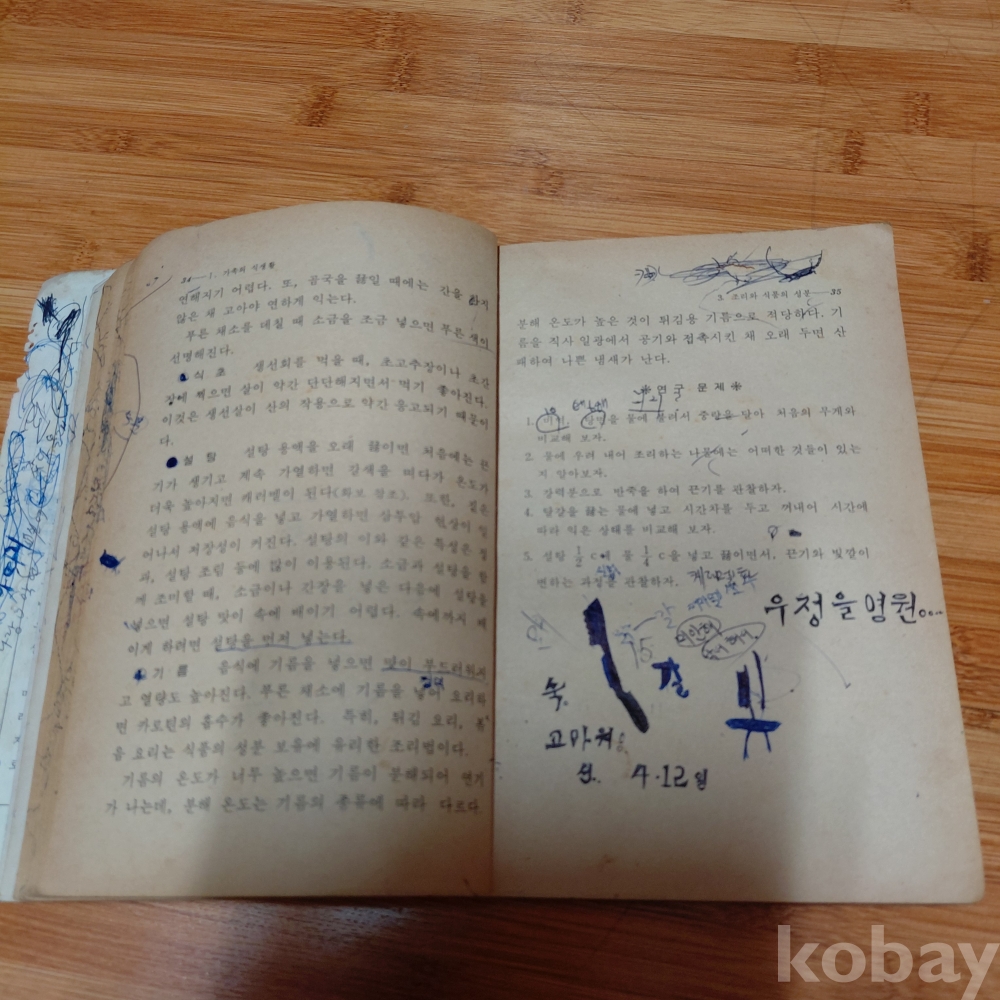 34—1. 가족의 식생활
연해지기 어렵다. 또, 곰국을 끓일 때에는 간을 하지
않은 채 고아야 연하게 익는다.
푸른 채소를 데칠 때 소금을 조금 넣으면 푸른 색이
선명해진다.
식초 생선회를 먹을 때, 초고추장이나 초간
장에 찍으면 살이 약간 단단해지면서 먹기 좋아진다.
이것은 생선살이 산의 작용으로 약간 응고되기 때문이
다.
설탕 설탕 용액을 오래 끓이면 처음에는 끈
기가 생기고 계속 가열하면 갈색을 띠다가 온도가
더욱 높아지면 캐러멜이 된다(화보 참조). 또한, 짙은
설탕 용액에 음식을 넣고 가열하면 삼투압 현상이 일
어나서 저장성이 커진다. 설탕의 이와 같은 특성은
과, 설탕 조림 등에 많이 이용된다. 소금과 설탕을 함
께 조미할 때, 소금이나 간장을 넣은 다음에 설탕을
넣으면 설탕 맛이 속에 배이기 어렵다. 속에까지 배
이게 하려면 설탕을 먼저 넣는다.
기름 음식에 기름을 넣으면 맛이 부드러워지
고 열량도 높아진다. 푸른 채소에 기름을 넣어 요리하
면 카로틴의 흡수가 좋아진다. 특히, 튀김 요리, 볶
음 요리는 식품의 성분 보유에 유리한 조리법이다.
기름의 온도가 너무 높으면 기름이 분해되어 연기
가 나는데, 분해 온도는 기름의 종류에 따라 다르다.
3. 조리와 식품의 성분—35
분해 온도가 높은 것이 튀김용 기름으로 적당하다. 기
름을 직사 일광에서 공기와 접촉시킨 채 오래 두면 산
패하여 나쁜 냄새가 난다.
연구 문제
1. 미역, 당면을 물에 불려서 중량을 달아 처음의 무게와
비교해 보자.
2. 물에 우려 내어 조리하는 나물에는 어떠한 것들이 있는
지 알아보자.
3. 강력분으로 반죽을 하여 끈기를 관찰하자.
4. 달걀을 끓는 물에 넣고 시간차를 두고 꺼내어 시간에
따라 익은 상태를 비교해 보자.
5. 설탕 1/2 c에 물 1/4 c을 넣고 끓이면서, 끈기와 빛깔이
변하는 과정을 관찰하자.
우정을 영원...
미안해
숙.
고마워
4·12일
kobay